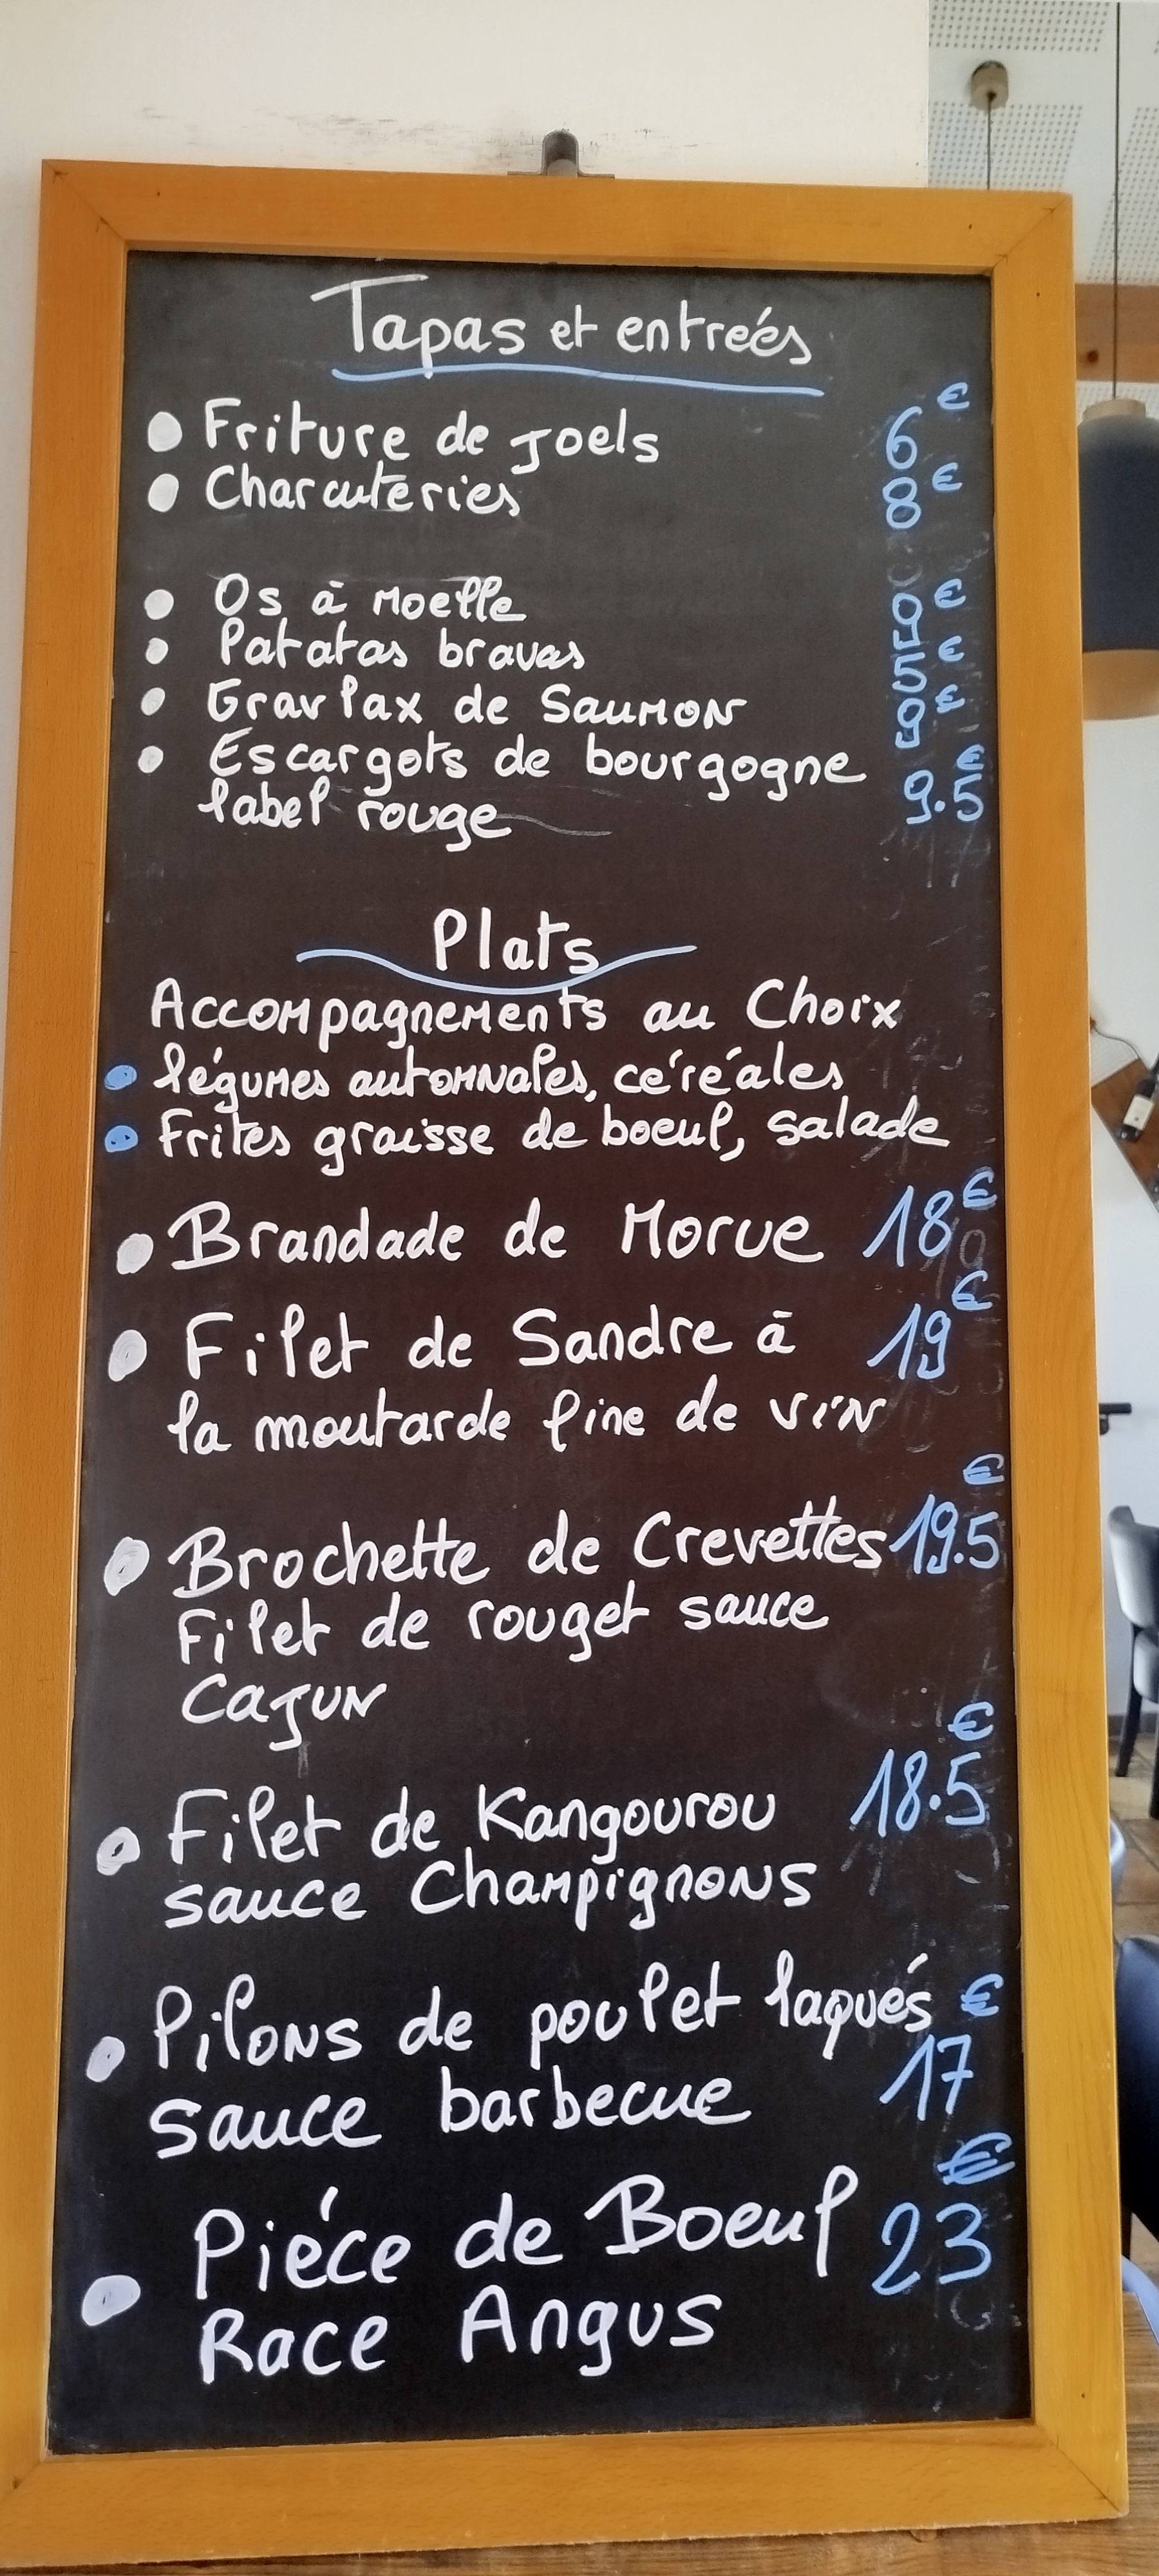 Tapas et entreés
Friture de Joels 6€
Charcuteries 8€
Os à Moelle 9€
Patatas bravas 5€
Gravlax de Saumon 9€
Escargots de bourgogne 9.5€
label rouge
Plats
Accompagnements au Choix
légumes automnales, céréales
Frites graisse de boeuf, salade
Brandade de Morue 18€
Filet de Sandre à 19€
la moutarde fine de vin
Brochette de Crevettes 19.5€
Filet de rouget sauce
Cajun
Filet de Kangourou 18.5€
sauce Champignons
Pilons de poulet laqués 17€
sauce barbecue
Piéce de Boeuf 23€
Race Angus